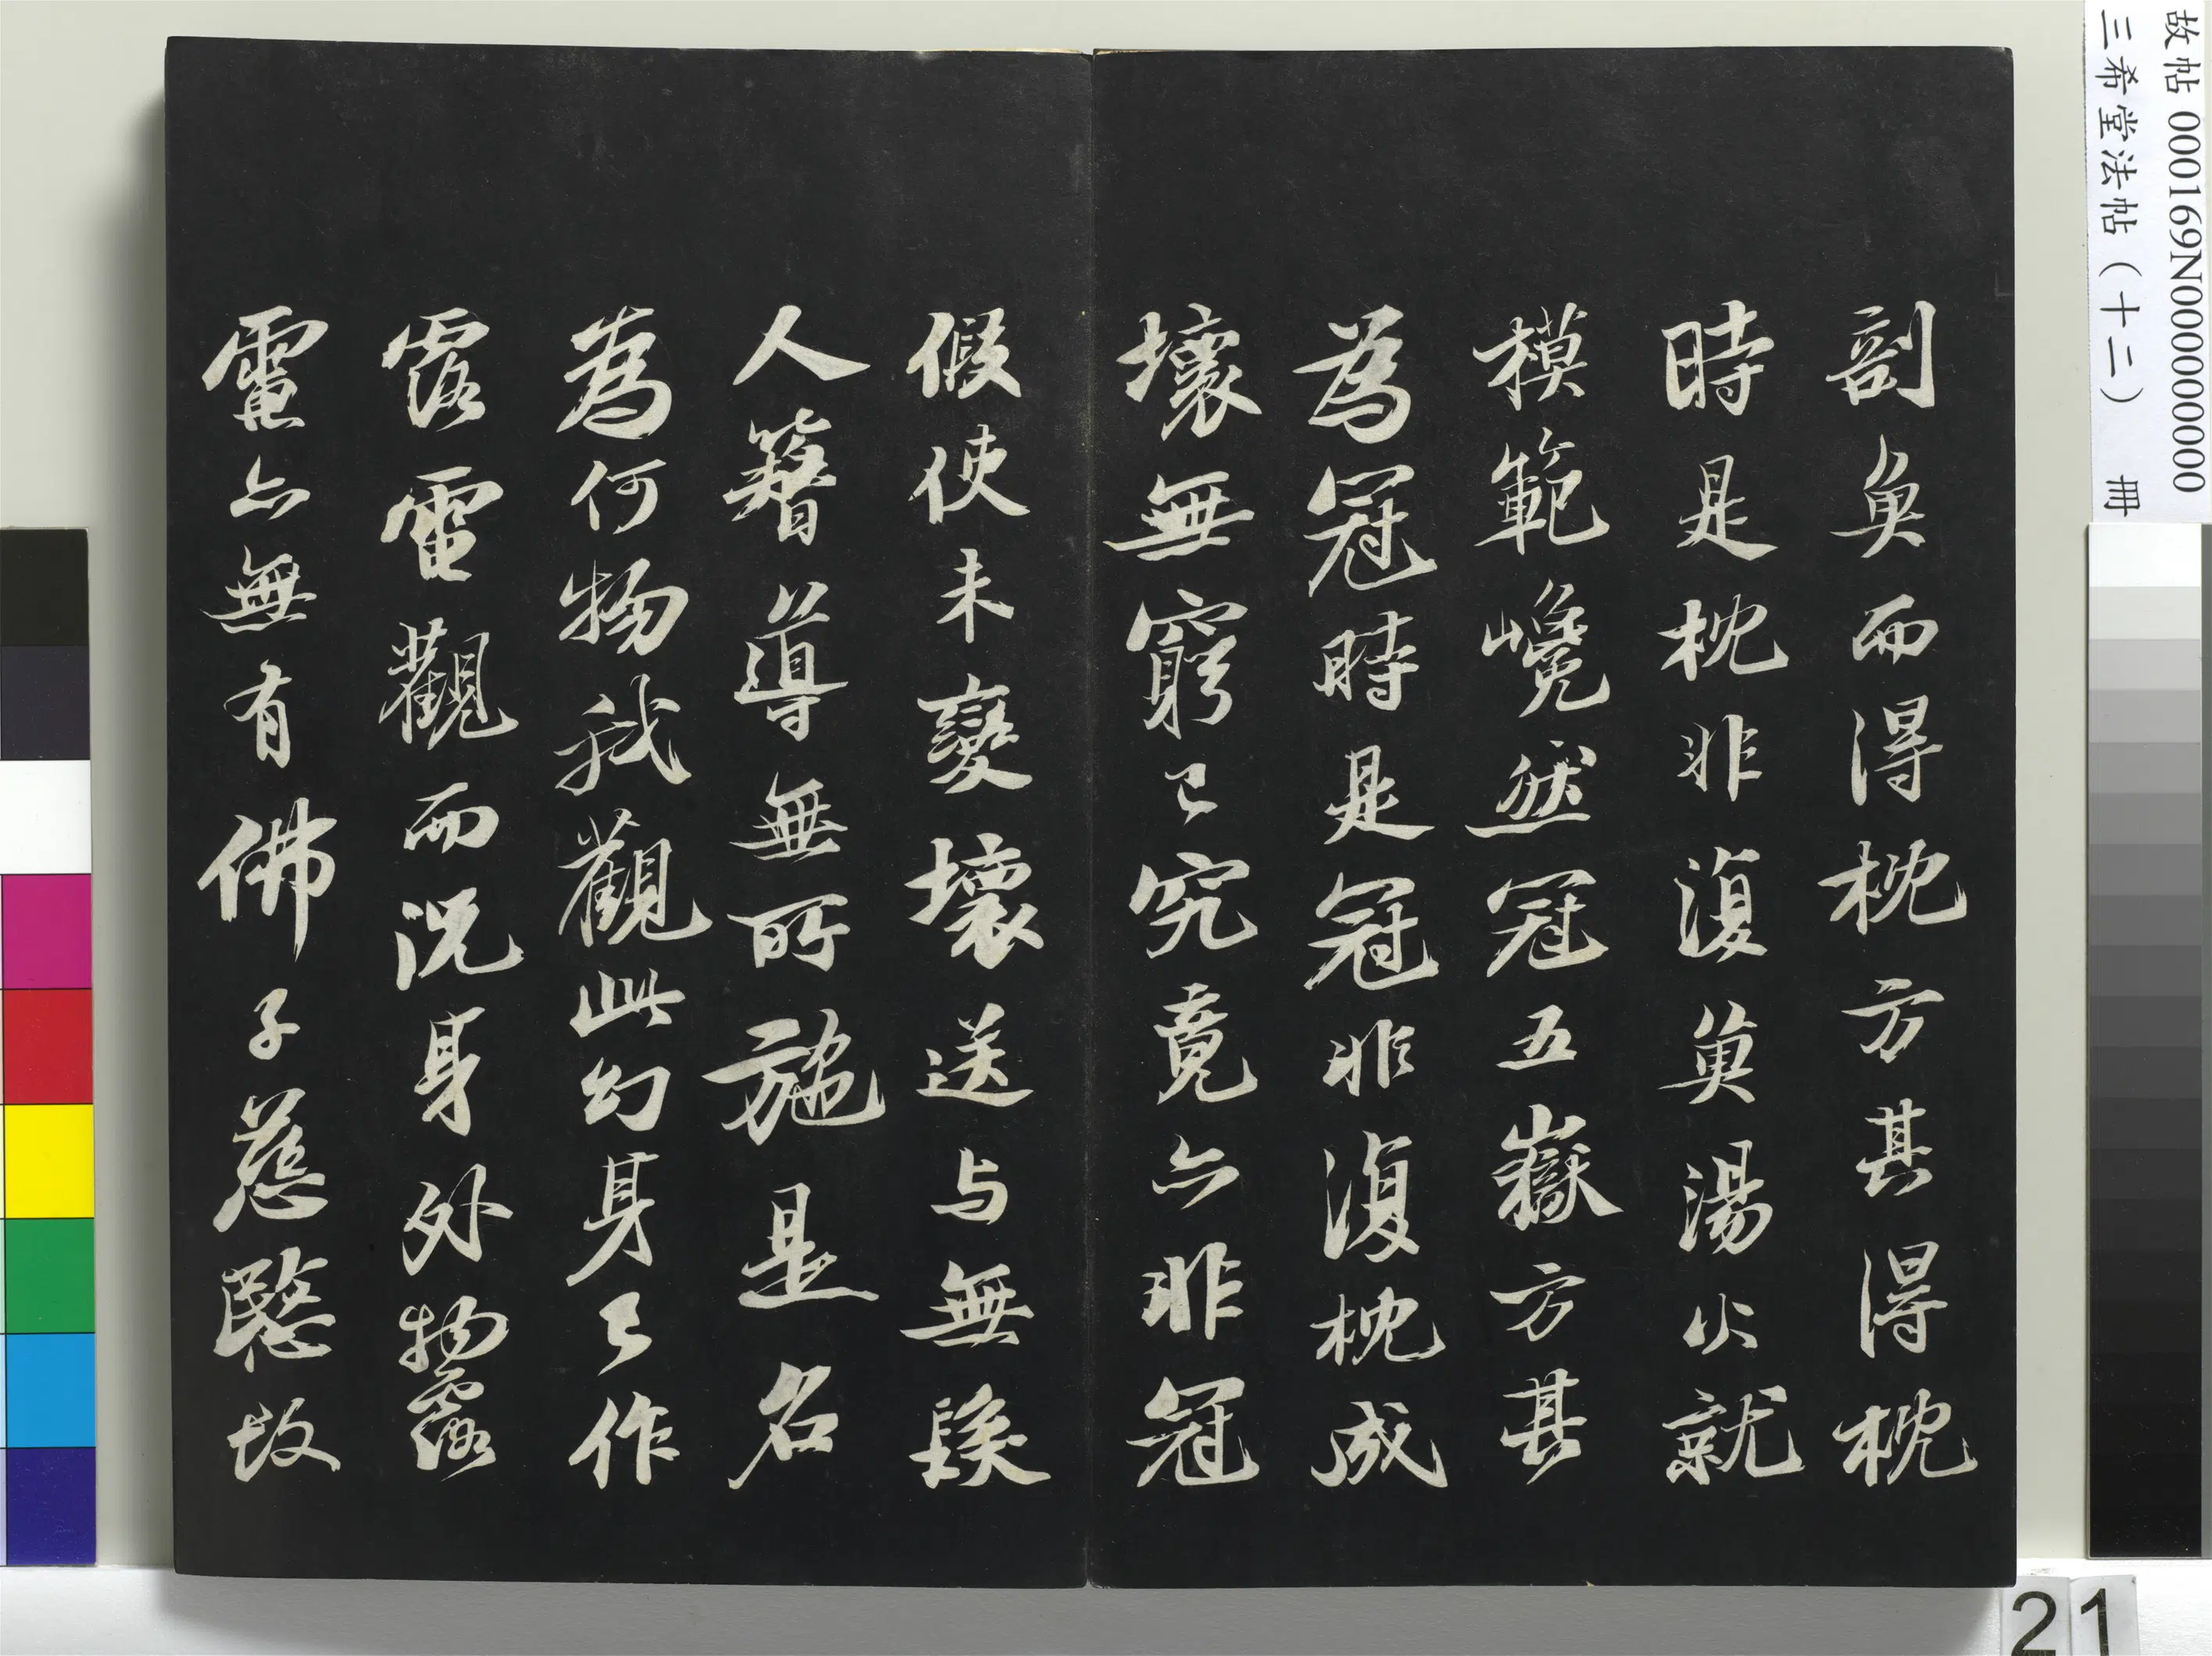 剖魚而得枕方其得枕
時是枕非復魚湯火就
模範巉然冠五嶽方其
為冠時是冠非復枕成
壞無窮已究竟亦非冠
假使未變壞送与無髮
人簪導無所施是名
為何物我觀此幻身已作
露電觀而況身外物露
電亦無有佛子慈愍故
故帖 000169N000000000
三希堂法帖(十二) 冊
21